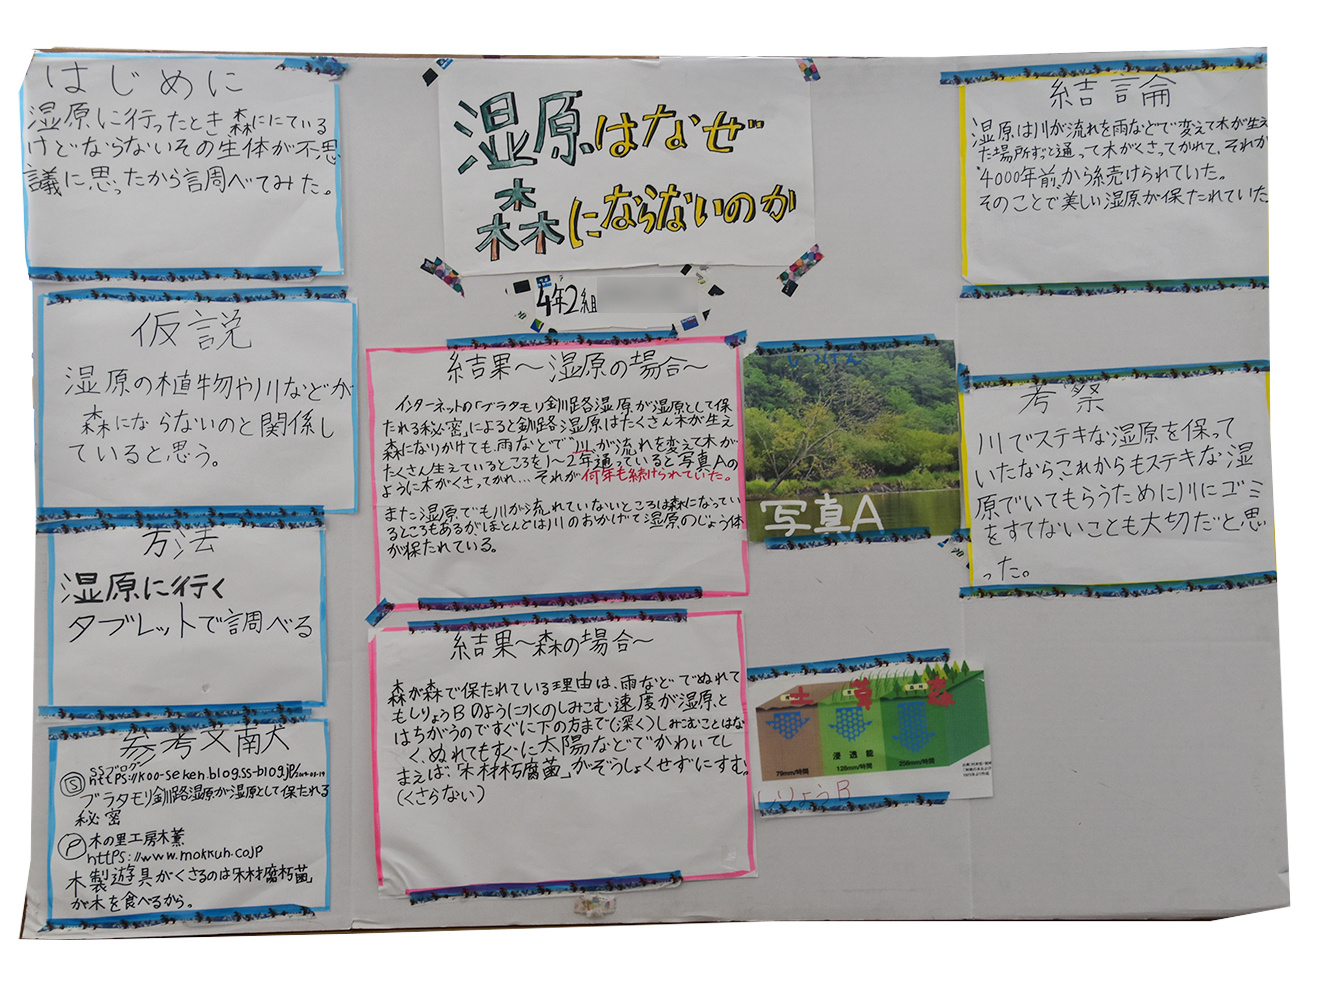 湿原はなぜ
森にならないのか
4年2組
はじめに
湿原に行ったとき森ににている
けどならないその生体が不思
議に思ったから調べてみた。
仮説
湿原の植物や川などが
森にならないのと関係し
ていると思う。
方法
湿原に行く
タブレットで調べる
参考文南犬
S SSブログ
https://koo-seken.blog.ss-blog.jp/
ブラタモリ釧路湿原が湿原として保たれる
秘密
P 木の里工房木薫
https://www.mokkun.co.jp
木製遊具がくさるのは「木材腐朽菌」
が木を食べるから。
結果〜湿原の場合〜
インターネットの「ブラタモリ釧路湿原が湿原として保
たれる秘密」によると釧路湿原はたくさん木が生え
森になりかけても、雨などで"川"が流れを変えて木が
たくさん生えているところを1〜2年通っていると写真Aの
ように木がくさってかれ…それが何年も続けられていた。
また湿原でも川が流れていないところは森になってい
るところもあるが、ほとんどは川のおかげで湿原のじょう体
が保たれている。
写真A
結果〜森の場合〜
森が森で保たれている理由は、雨などでぬれて
もしりょうBのように水のしみこむ速度が湿原と
はちがうのですぐに下の方まで(深く)しみこむことはな
く、ぬれてもすぐに太陽などでかわいてし
まえば「木材朽腐菌」がぞうしょくせずにすむ。
(くさらない)
土 草 森
浸透能
79mm/時間 128mm/時間 258mm/時間
しりょうB
結論
湿原は川が流れを雨などで変えて木が生え
た場所ずっと通って木がくさってかれて、それが
"4000年前"から続けられていた。
そのことで美しい湿原が保たれていた
考祭
川でステキな湿原を保って
いたなら、これからもステキな湿
原でいてもらうために川にゴミ
をすてないことも大切だと思
った。